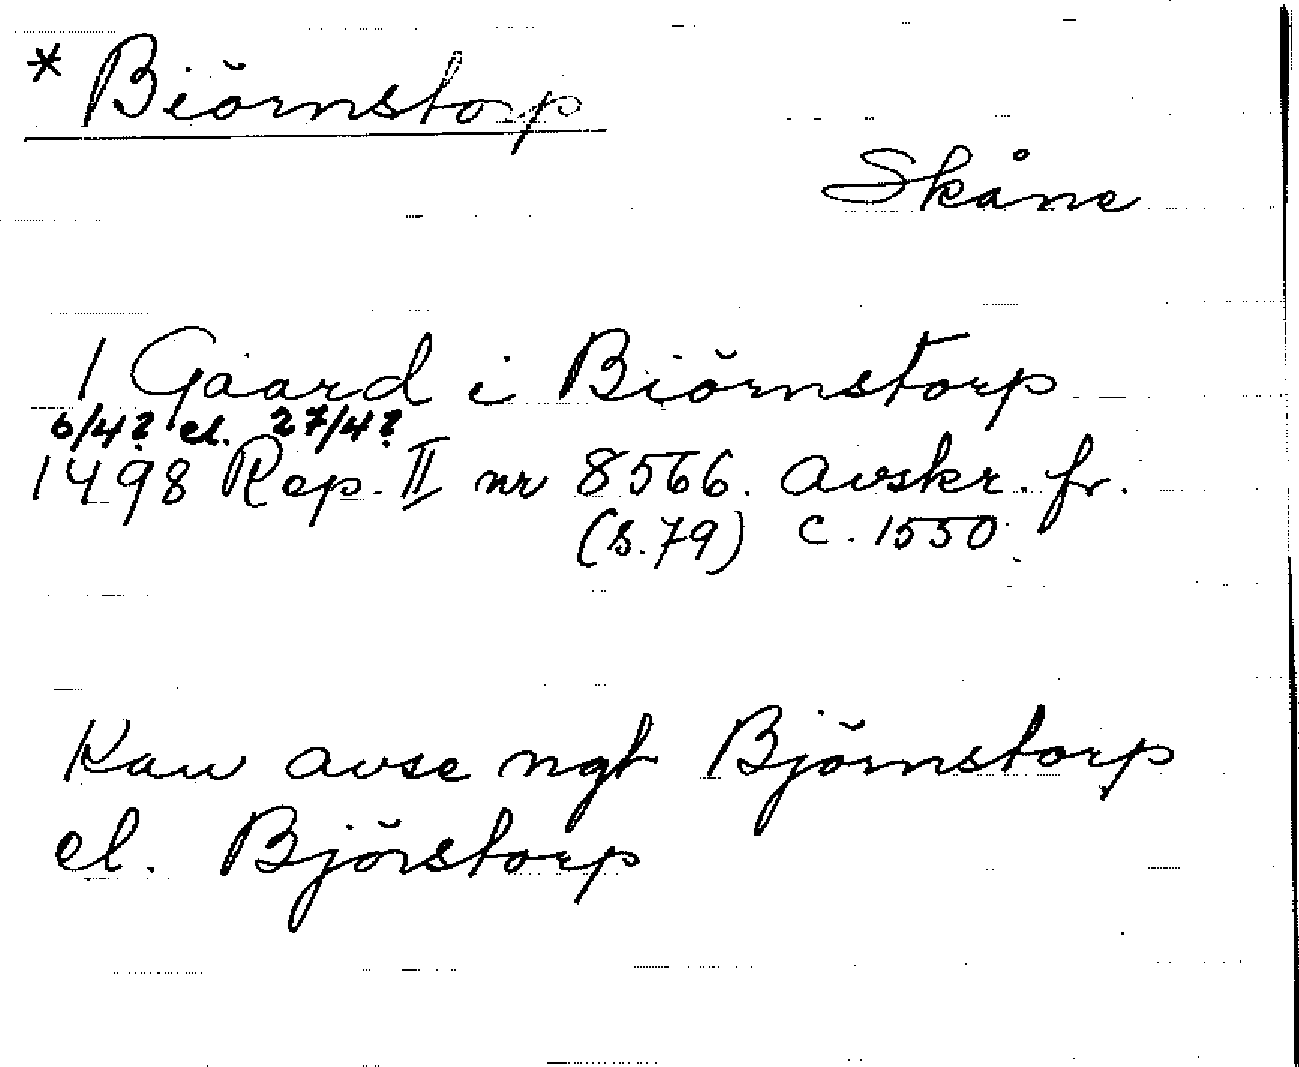 * Biörnstorp
Skåne
1 Gaard i Biörnstorp
6/4? el. 27/4?
1498 Rep. II nr 8566. Avskr. fr.
(s. 79) c. 1550.
Kan avse ngt Björnstorp
el. Björstorp